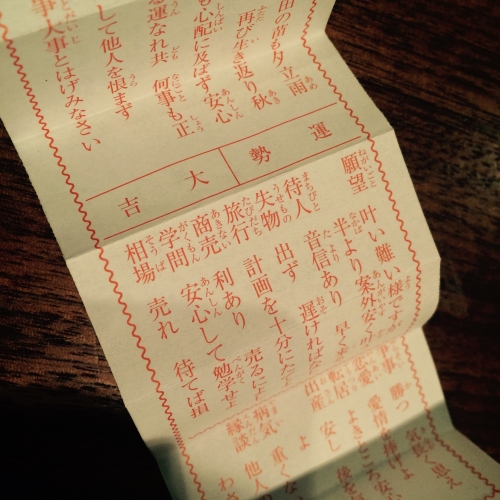 田の苗も夕立雨
再び生き返り 秋
も心配に及ばず安心
る運なれ共 何事も正
して他人を恨まず
事大事とはげみなさい
運勢
大吉
願望 叶い難い様です
半より案外安く
待人 音信あり 早く
失物 出ず 遅ければ
旅行 計画を十分に
商売 利あり 売るに
学問 安心して勉学せ
相場 売れ 待てば損
争事 勝つ 気長く思え
恋愛 愛情を捧げよ
転居 よきところ
出産 安し
病気 重くな
縁談 他人 わざ